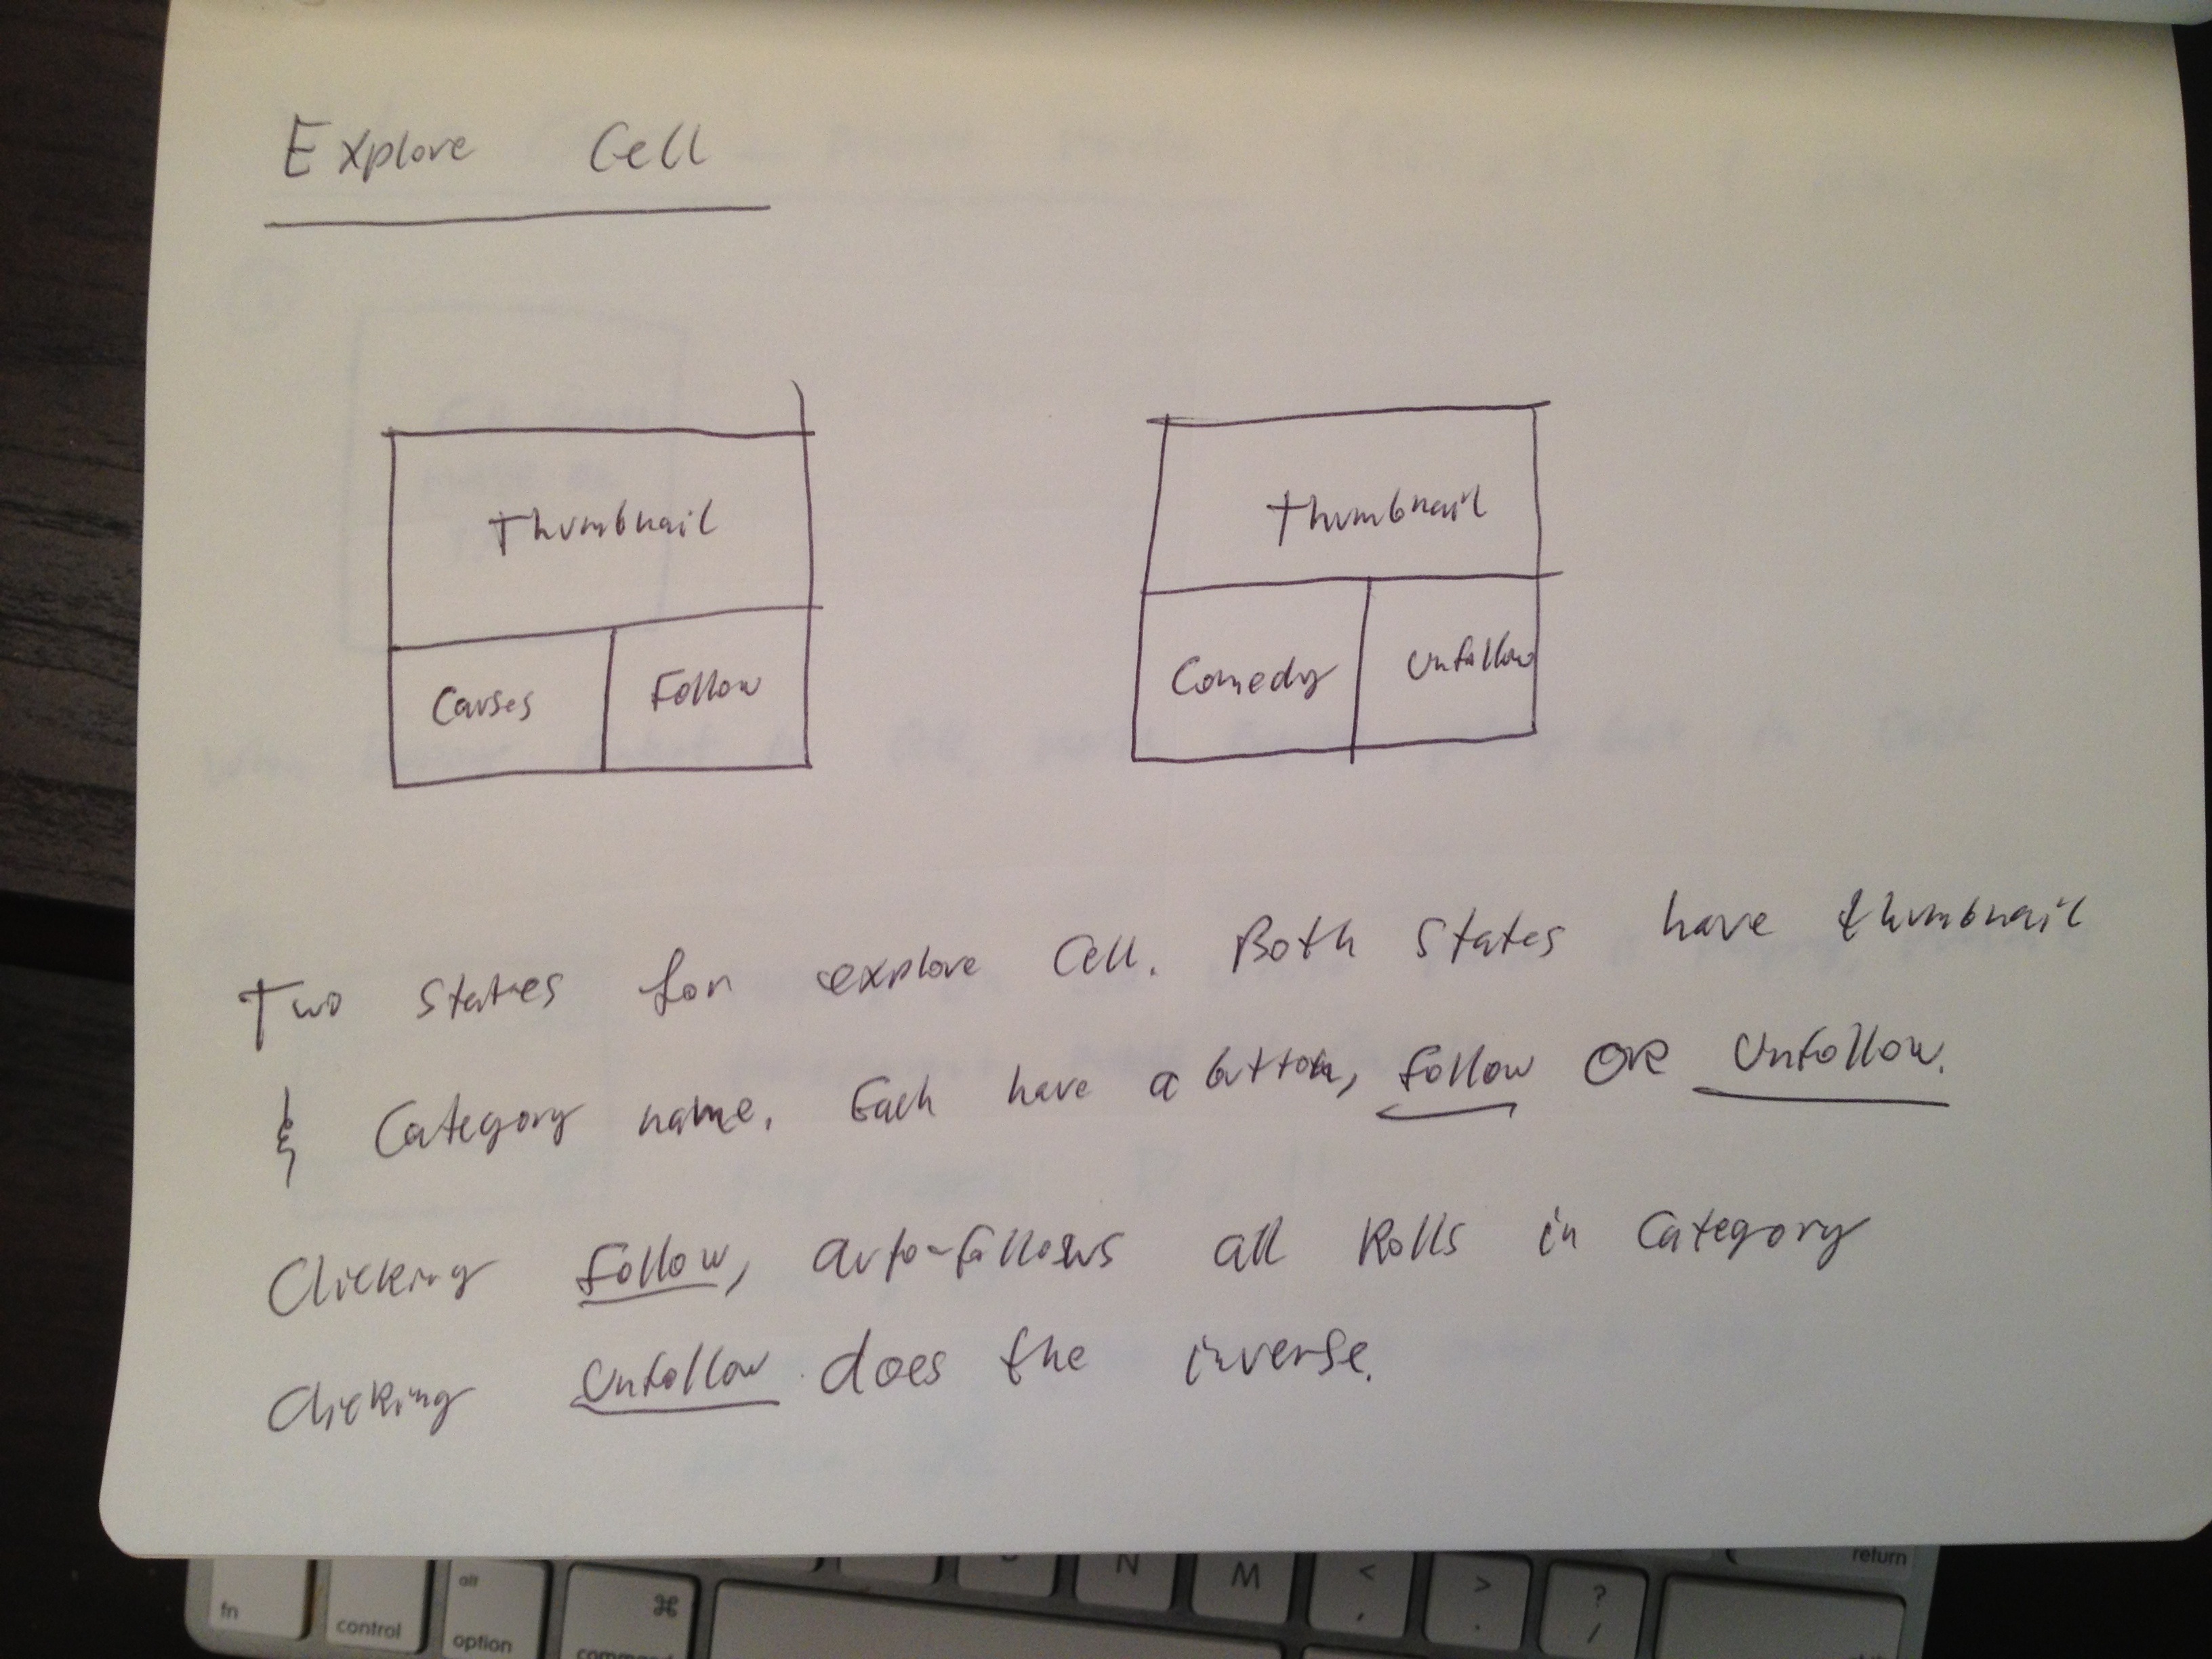 Explore Cell
Thumbnail
Causes Follow
Thumbnail
Comedy Unfollow
Two states for explore Cell. Both states have thumbnail
& Category name. Each have a button, Follow OR Unfollow.
Clicking Follow, auto-follows all Rolls in Category
Clicking Unfollow does the inverse.
N M < , > . ? / return
fn control alt option ⌘